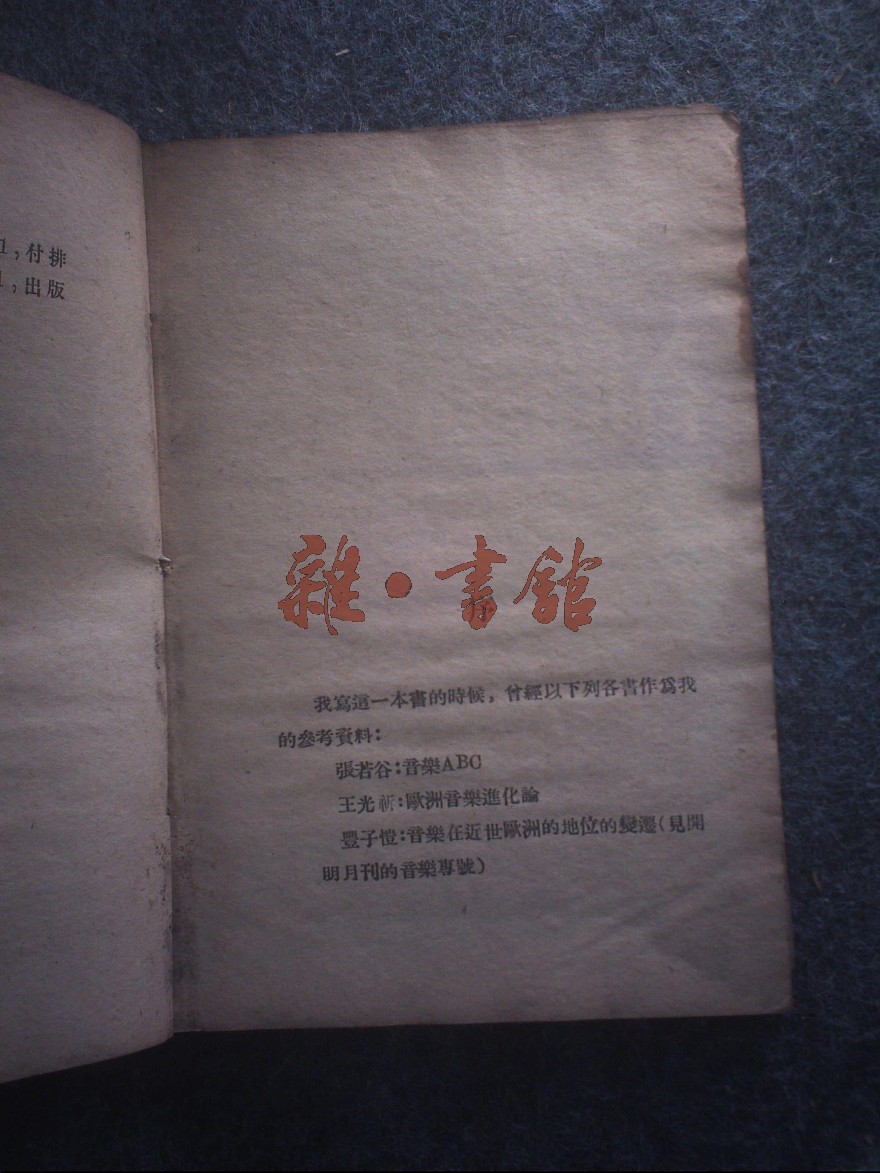 1，付排
1，出版
雜·書館
我寫這一本書的時候，曾經以下列各書作爲我
的參考資料：
張若谷：音樂ABC
王光祈：歐洲音樂進化論
豐子愷：音樂在近世歐洲的地位的變遷（見開
明月刊的音樂專號）